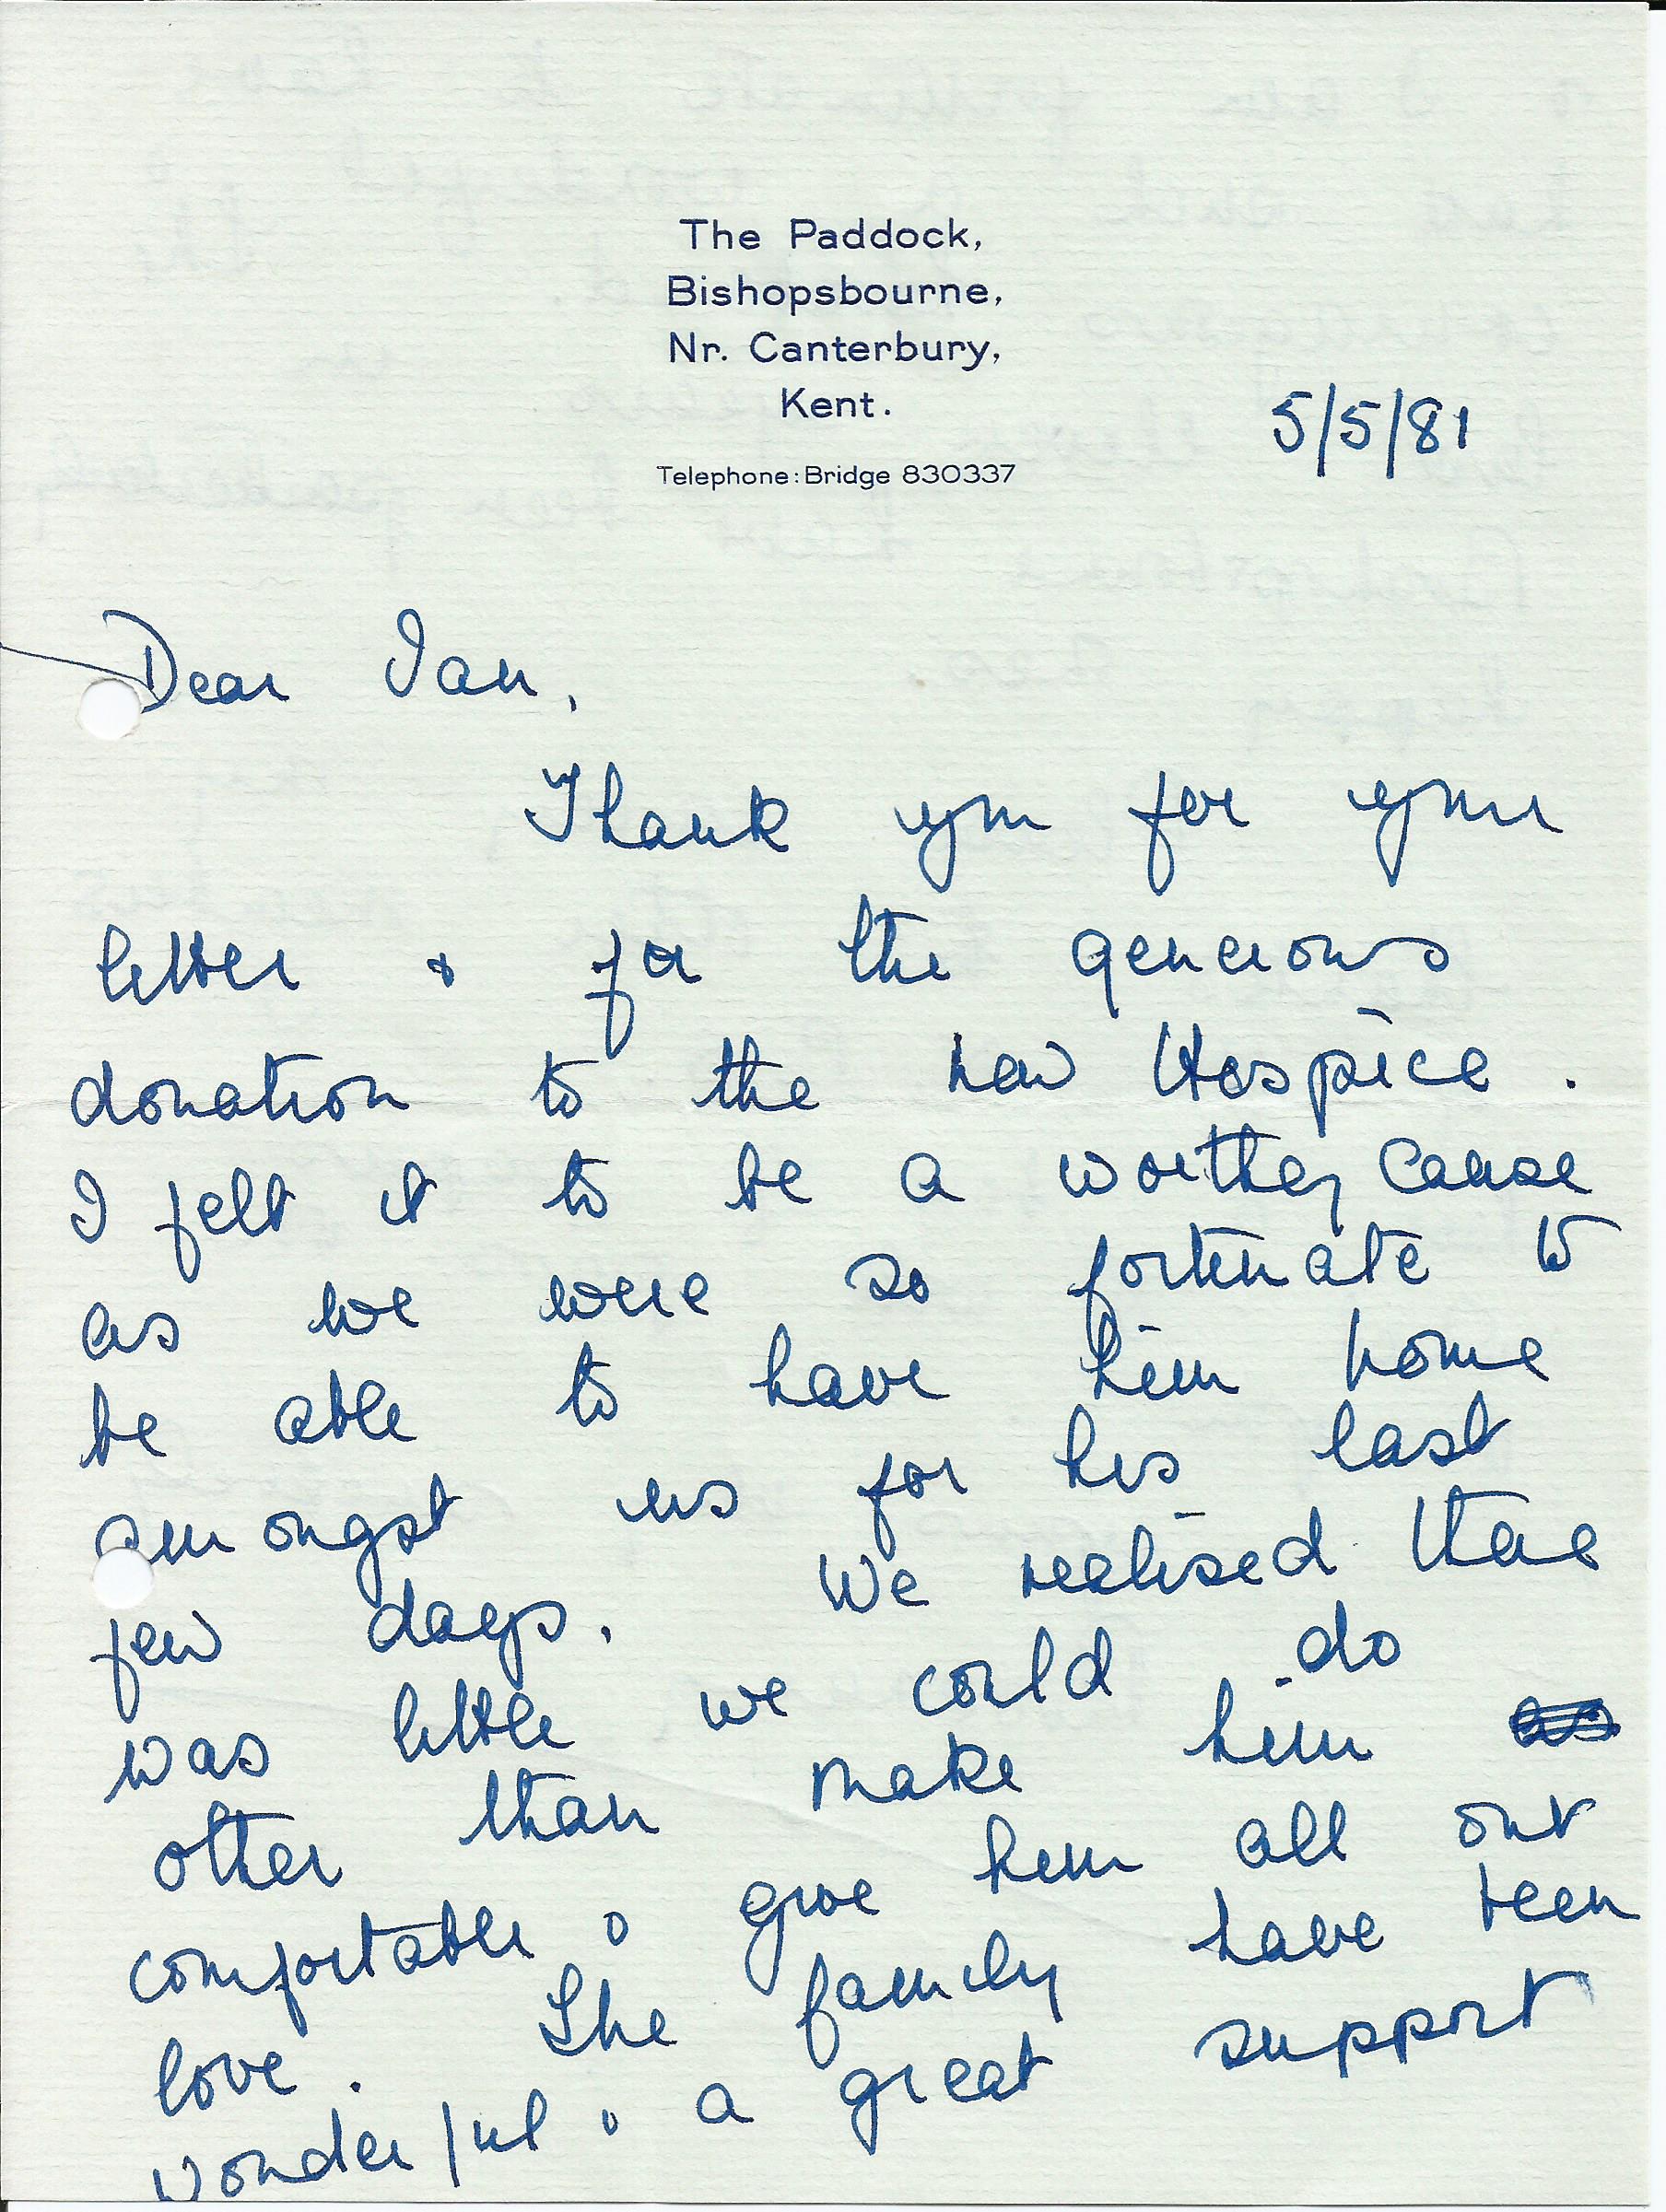 The Paddock,
Bishopsbourne,
Nr. Canterbury,
Kent.
5/5/81
Telephone: Bridge 830337
Dear Ian,
Thank you for your
letter & for the generous
donation to the new Hospice.
I felt it to be a worthy cause
as we were so fortunate to
be able to have him home
amongst us for his last
few days. We realised there
was little we could do
other than make him
comfortable & give him all our
love. The family have been
wonderful & a great support